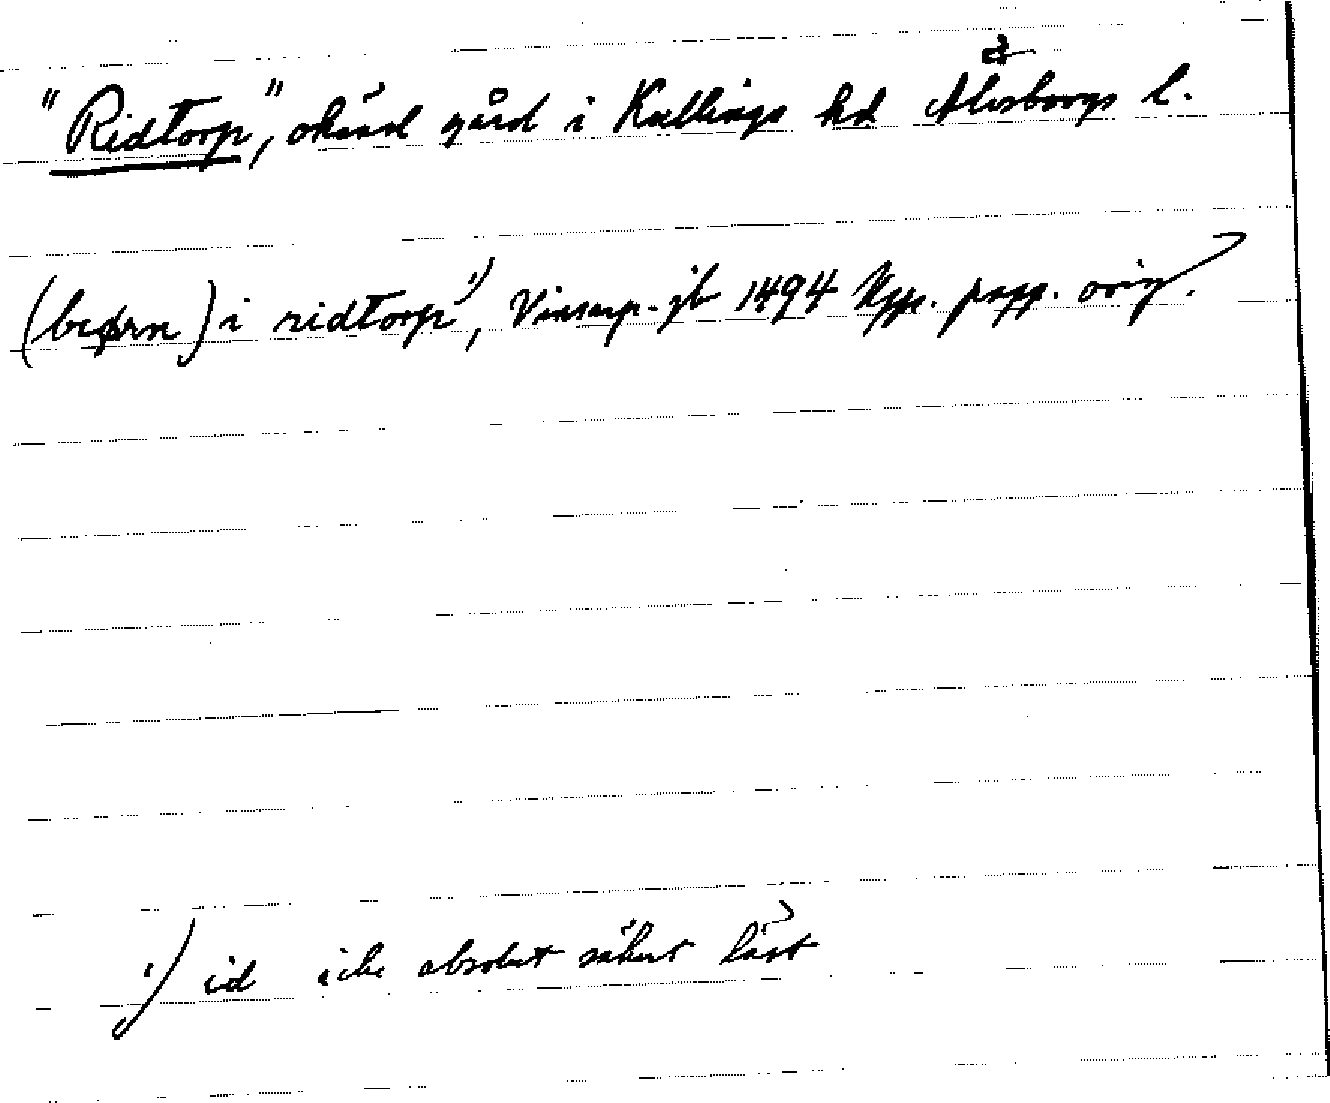 "Ridtorp", okänd gård i Kullings hd Älvsborgs l.
(beørn) i ridtorp 1), Vinsarp-jb 1494 Upps. papp. orig.
1) id icke absolut säkert läst